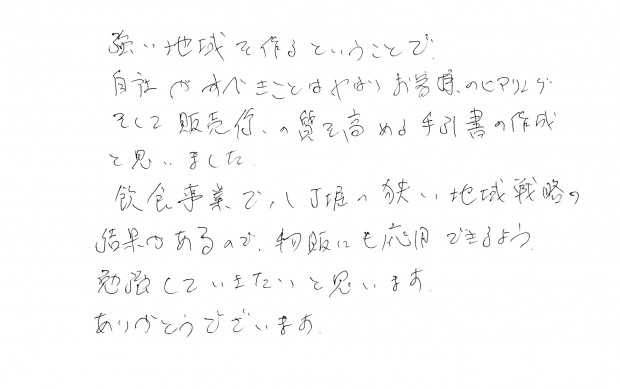 強い地域を作るということで、
自社がすべきことはやはりお客様のヒアリング
そして販売員の質を高める手引書の作成
と思いました。
飲食事業で八丁堀の狭い地域戦略の
結果があるので、物販にも応用できるよう
勉強していきたいと思います。
ありがとうございます。